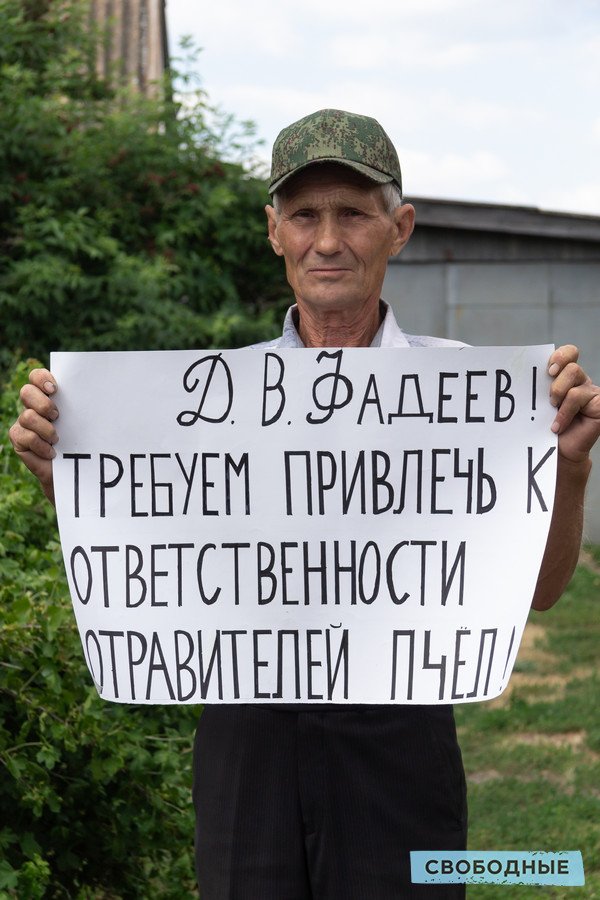 Д. В. ФАДЕЕВ!
ТРЕБУЕМ ПРИВЛЕЧЬ К
ОТВЕТСТВЕННОСТИ
ОТРАВИТЕЛЕЙ ПЧЁЛ!
СВОБОДНЫЕ